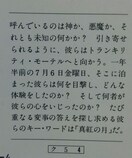 呼んでいるのは神か、悪魔か、そ
れとも未知の何かか？　引き寄
せられるように、彼らはトランキリ
ティ・モーテルへと向かう。一年
半前の7月6日金曜日、そこに泊
まった彼らは何を目撃し、どんな
体験をしたのか？　そして何者が
彼らの心をいじったのか？　たび
重なる変事の答えを探し求める彼
らのキー・ワードは「真紅の月」だ。
ク 5 4